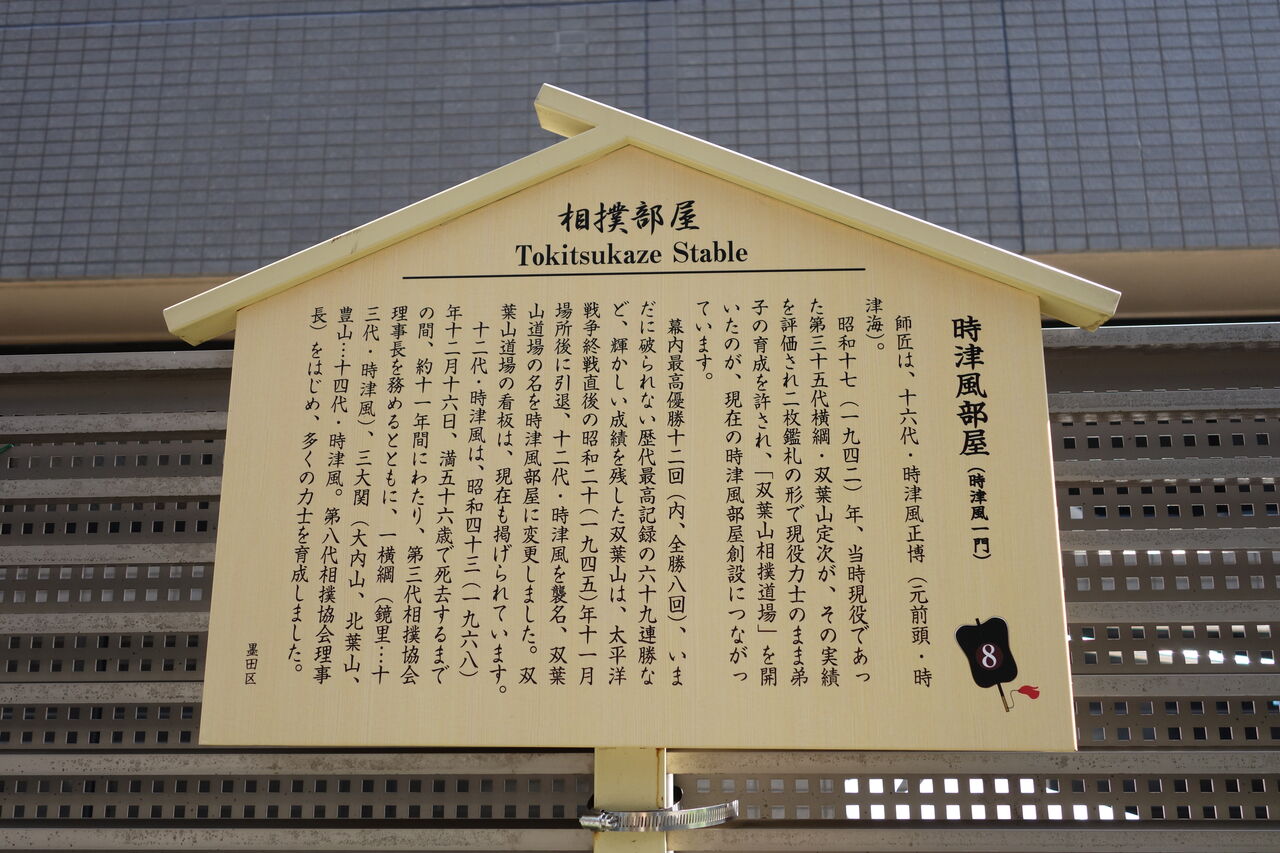 相撲部屋
Tokitsukaze Stable
時津風部屋(時津風一門)
師匠は、十六代・時津風正博(元前頭・時
津海)。
昭和十七(一九四二)年、当時現役であっ
た第三十五代横綱・双葉山定次が、その実績
を評価され二枚鑑札の形で現役力士のまま弟
子の育成を許され、「双葉山相撲道場」を開
いたのが、現在の時津風部屋創設につながっ
ています。
幕内最高優勝十二回(内、全勝八回)、いま
だに破られない歴代最高記録の六十九連勝な
ど、輝かしい成績を残した双葉山は、太平洋
戦争終戦直後の昭和二十(一九四五)年十一月
場所後に引退、十二代・時津風を襲名、双葉
山道場の名を時津風部屋に変更しました。双
葉山道場の看板は、現在も掲げられています。
十二代・時津風は、昭和四十三(一九六八)
年十二月十六日、満五十六歳で死去するまで
の間、約十一年間にわたり、第三代相撲協会
理事長を務めるとともに、一横綱(鏡里…十
三代・時津風)、三大関(大内山、北葉山、
豊山…十四代・時津風。第八代相撲協会理事
長)をはじめ、多くの力士を育成しました。
墨田区
8